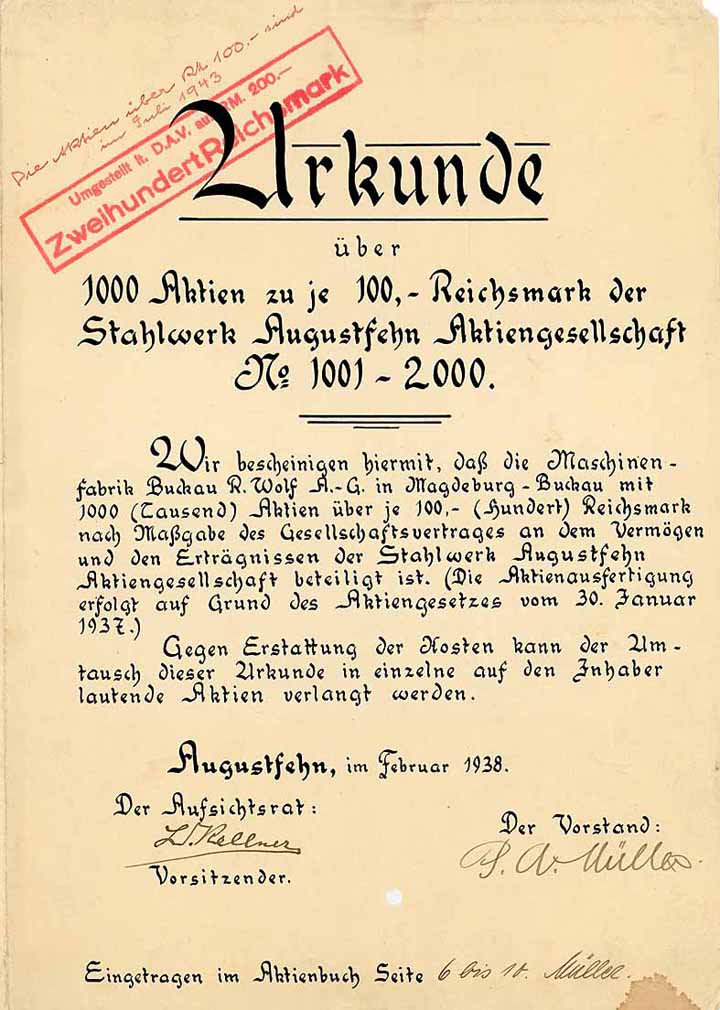 Die Aktien über RM 100.- sind
im Juli 1943
Umgestellt lt. D.A.V. auf RM. 200.—
Zweihundert Reichsmark
Urkunde
über
1000 Aktien zu je 100,- Reichsmark der
Stahlwerk Augustfehn Aktiengesellschaft
№ 1001 - 2000.
Wir bescheinigen hiermit, daß die Maschinen-
fabrik Buckau R. Wolf A.-G. in Magdeburg-Buckau mit
1000 (Tausend) Aktien über je 100,- (Hundert) Reichsmark
nach Maßgabe des Gesellschaftsvertrages an dem Vermögen
und den Erträgnissen der Stahlwerk Augustfehn
Aktiengesellschaft beteiligt ist. (Die Aktienausfertigung
erfolgt auf Grund des Aktiengesetzes vom 30. Januar
1937.)
Gegen Erstattung der Kosten kann der Um-
tausch dieser Urkunde in einzelne auf den Inhaber
lautende Aktien verlangt werden.
Augustfehn, im Februar 1938.
Der Aufsichtsrat:
Kellner
Vorsitzender.
Der Vorstand:
Müller.
Eingetragen im Aktienbuch Seite 6 bis 10. Müller.